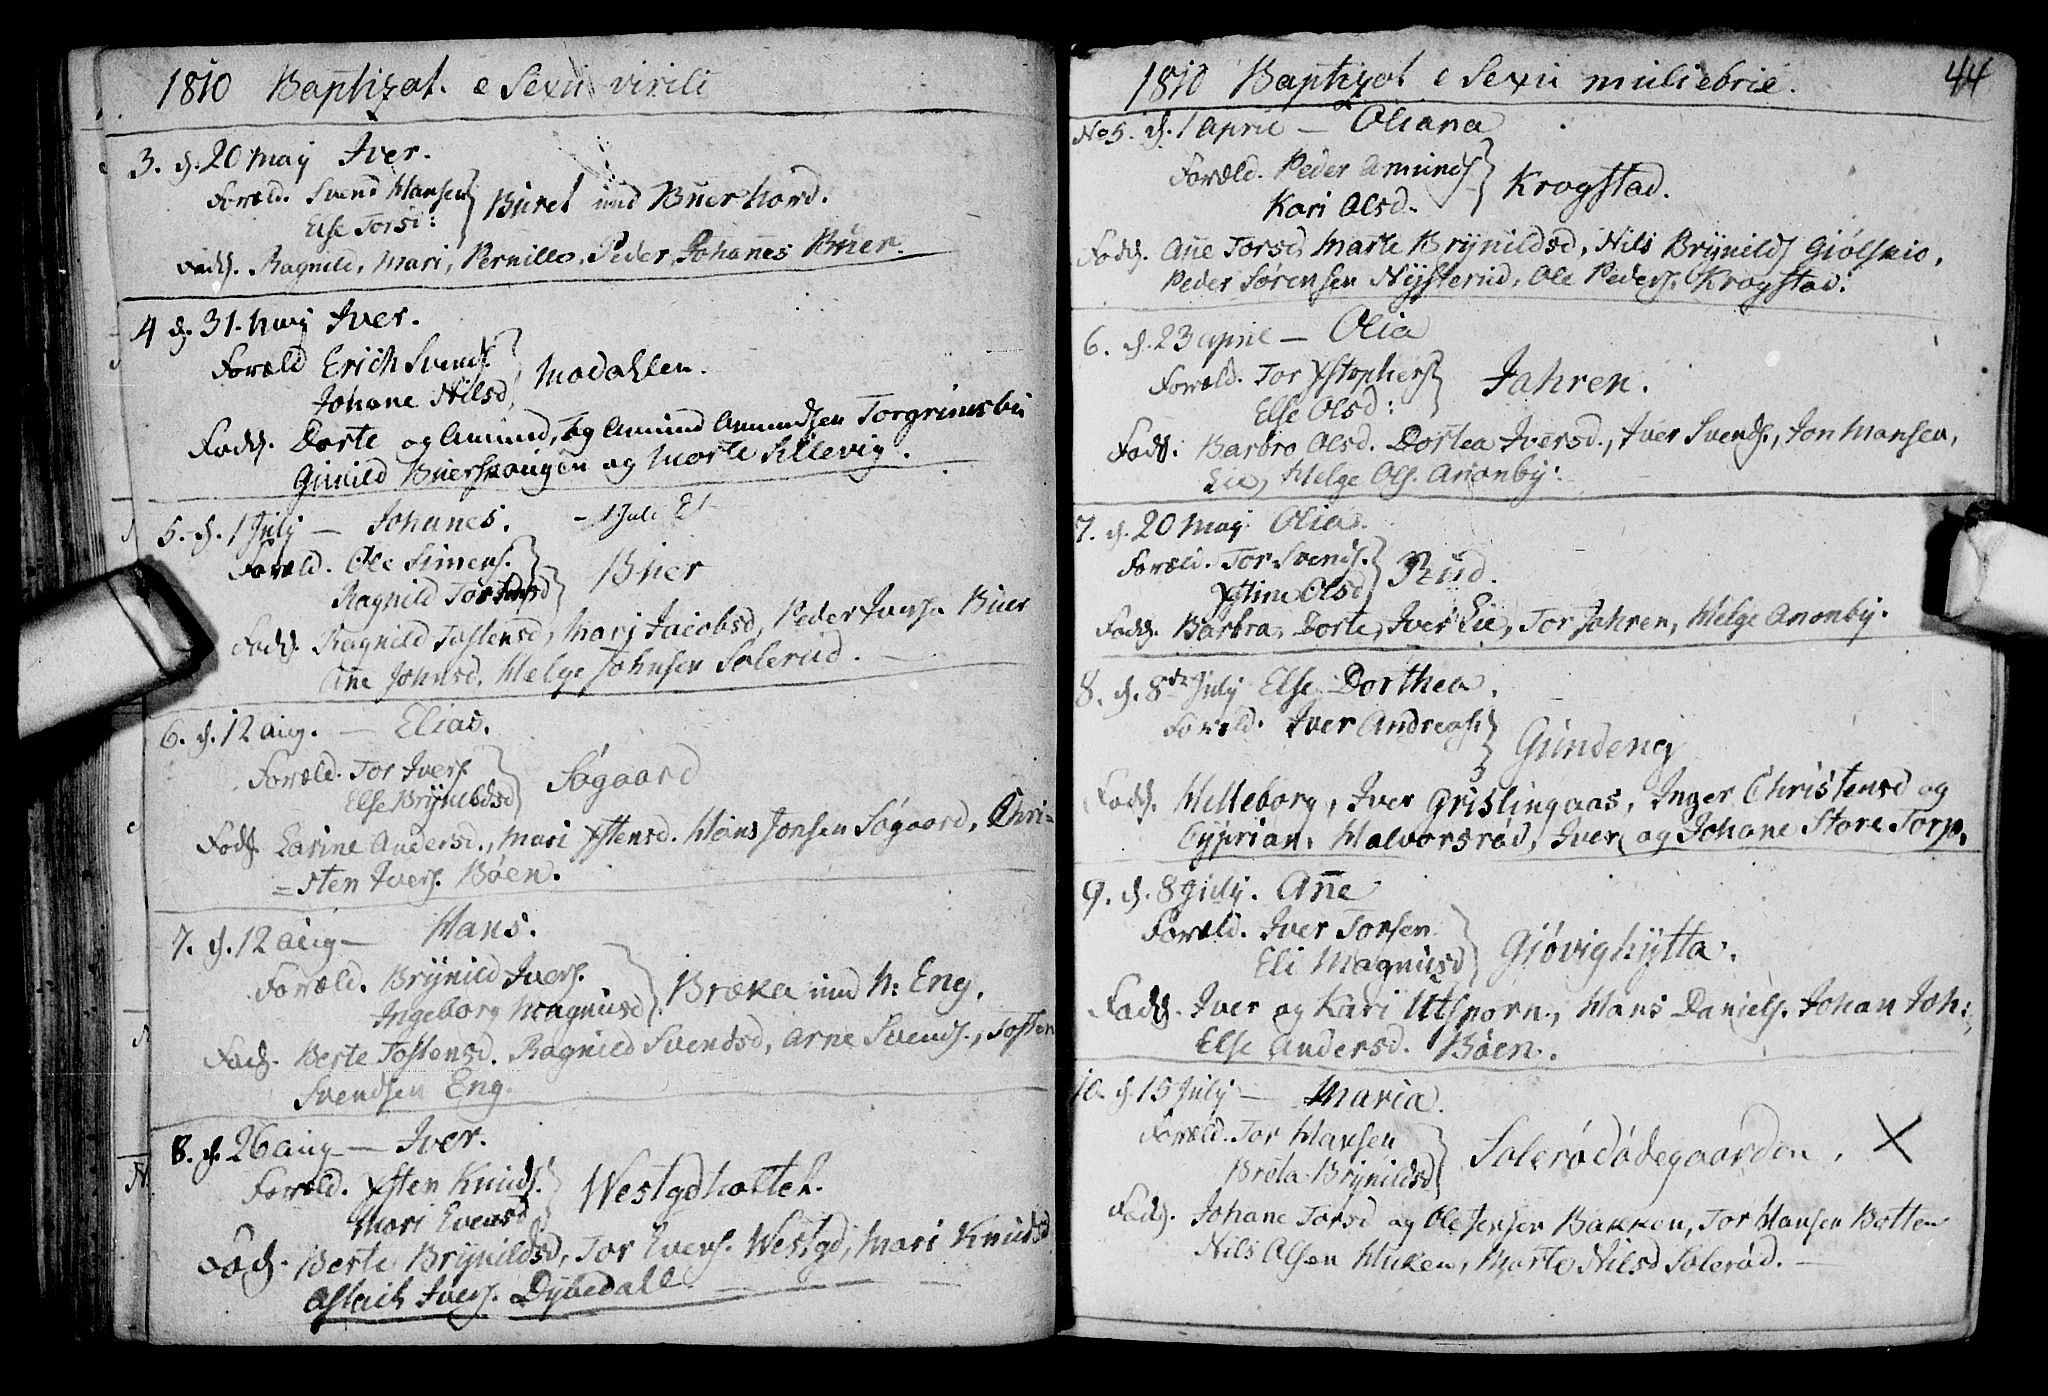 1810 Baptizat. e Sexu virili
3. d. 20 May Iver.
Foræld. Svend Hansen
Else Torsd:
Buret und Buerhord.
Fadd. Ragnild, Mari, Pernille, Peder, Johanes Buer.
4 d. 31. May Iver.
Foræld Erich Svends.
Johane Nilsd,
Modahlen.
Fadd. Dorte og Amund, og Amund Amundsen Torgrimsbu
Gunild Buerskougen og Morte Sillevig.
5. d. 1 July — Johanes. - 1 Juli
Foræld. Ole Simens.
Ragnild
Buer
Fadd. Ragnild Tostensd, Mari Jacobsd, Peder Iversen Buer
Ane Johnsd. Helge Johnsen Solerud. —
6. d. 12 aug. — Elias.
Foræld. Tor Ivers.
Else Brynildsd
Søgaard
Fadd. Larine Andersd., Mari Xstensd. Hans Jonsen Søgaard, Chri=
=sten Ivers. Böen.
7. d. 12 aug — Hans.
Foræld. Brynild Ivers.
Ingeborg Magnusd.
Bræka und N: Eng.
Fadd. Berte Tostensd. Ragnild Svendsd, Arne Svends., Tosten
Svendsen Eng.
8. d. 26 aug — Iver.
Foræld. Xsten Knuds.
Mari Evensd
Westgdholtet.
Fadd. Berte Brynildsd, Tor Evens. Westgd, Mari Knudsd
Aslach Ivers. Dybedall. —
1810 Baptizat e Sexu muliebrie. 44
No 5. d. 1 April — Oliana
Foræld. Peder Amunds
Kari Olsd.
Krogstad.
Fadd. Ane Torsd, Marte Brynildsd, Nils Brynilds Giølskio,
Peder Sørensen Nysterud, Ole Peders. Krogstad.
6. d. 23 april — Olia
Foræld. Tor Xstophers
Else Olsd:
Jahren.
Fadd. Barbro Olsd. Dortea Iversd., Iver Svends, Jon Hansen,
Lie, Helge Ols. Anonby:
7. d. 20 May Olia.
Foræld. Tor Svends.
Xstine Olsd
Rud.
Fadd. Barbra, Dorte, Iver Lie, Tor Jahren, Helge Anonby.
8. d. 8de July Else Dorthea.
Foræld. Iver Andreas
Gundeng
Fadd. Helleborg, Iver Grislingaas, Inger Christensd og
Cyprian, Halvorsrød, Iver og Johane Store Torp.
9. d. 8 July. Ane
Foræld. Iver Torsen
Eli Magnusd
Giøvighytta.
Fadd. Iver og Kari Utsporn., Hans Daniels. Johan Joh:
Else Andersd. Böen.
10. d. 15 July — Maria.
Foræld. Tor Hansen
Breta Brynildsd
Solerødødegaarden. X
Fadd. Johane Torsd og Ole Jensen Bakken, Tor Hansen Botten
Nils Olsen Huken, Marte Nilsd Solerød. —